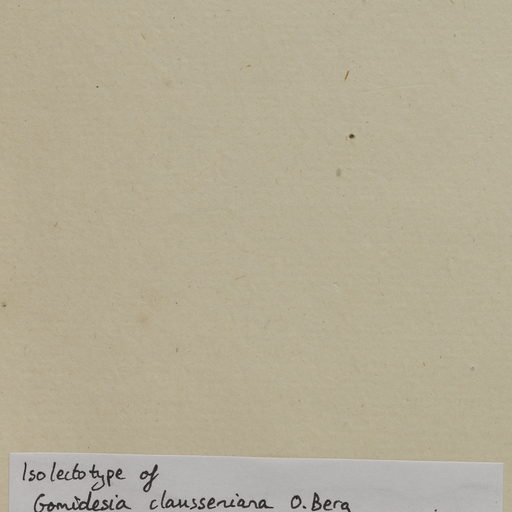 Isolectotype of
Gomidesia clausseniana O.Berg